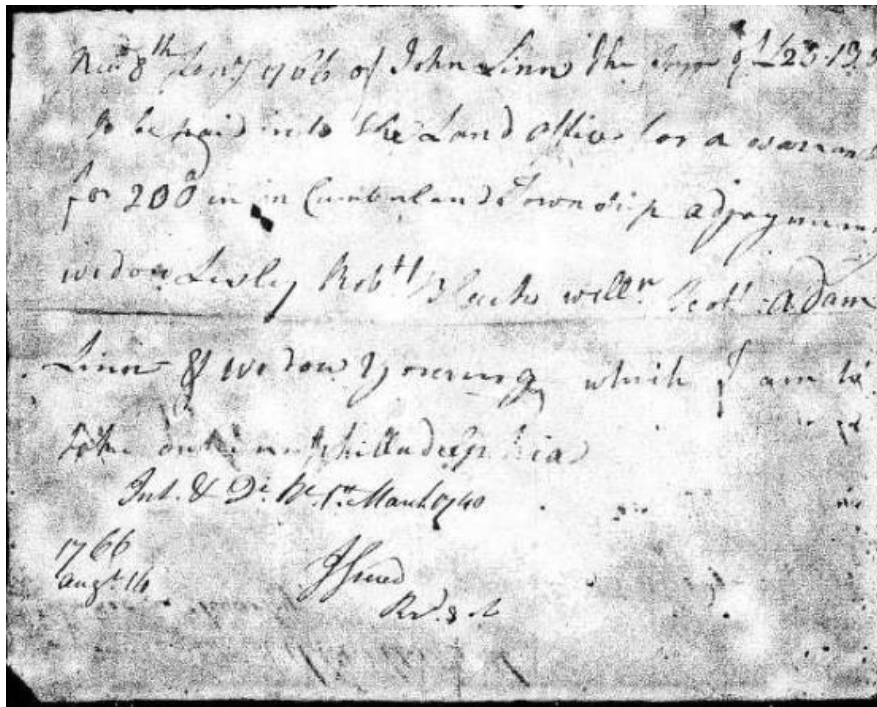 8th 1766 of John Linn the Sum of £23.13
to be paid into the Land office for a warrant
for 200a in in Cumberland Township
widow Lesly Robtt Blacks willm Scott adam
Linn & widow which I am to
take out in philladelphia
Int. & 1st March 1740
1766
Augt. 14
Issued